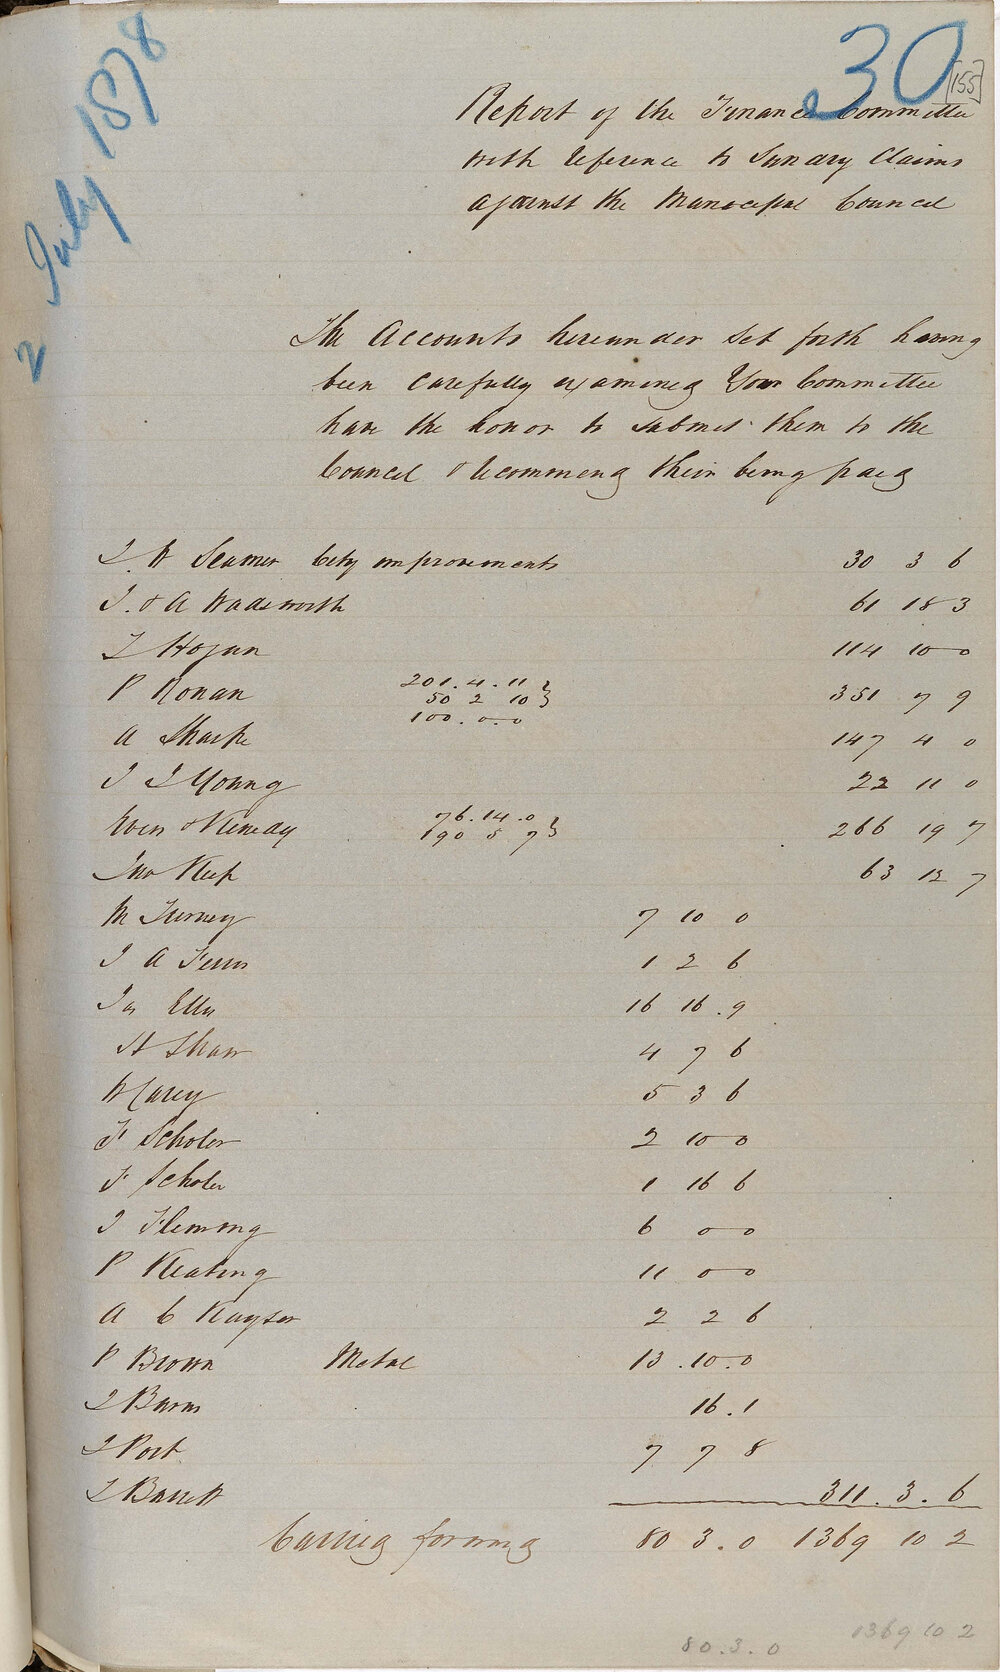 2 July 1878
30
[155]
Report of the Finance Committee
with reference to Sundry Claims
against the Municipal Council
The Accounts hereunder set forth having
been Carefully examined Your Committee
have the honor to submit them to the
Council & recommend their being paid
J. W Seamer City improvements 30 3 6
J. & A Wadsworth 61 18 3
T Hogan 114 10 0
P Ronan 201.4.11 50 2 10 100.0.0 351 7 9
A Sharpe 147 4 0
J J Young 22 11 0
& Kennedy 76.14.0 190 5 7 266 19 7
Jno Keep 63 12 7
M Tierney 7 10 0
J A Ferris 1 2 6
Jas Ellis 16 16.9
H Shaw 4 7 6
W Carey 5 3 6
F Scholer 2 10 0
F Scholer 1 16 6
J Fleming 6 0 0
P Keating 11 0 0
A C Kayser 2 2 6
P Brown Metal 13.10.0
J Burns 16.1
J Port 7 7 8
J Barrett 311.3.6
Carried forward 80 3.0 1369 10 2
80.3.0 1369 10 2